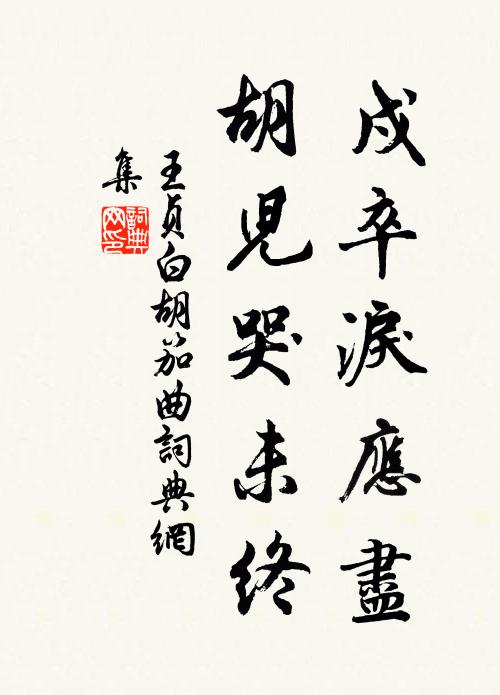 戍卒淚應盡
胡兒哭未終
王貞白胡笳曲詞典網
集
詞典
网印